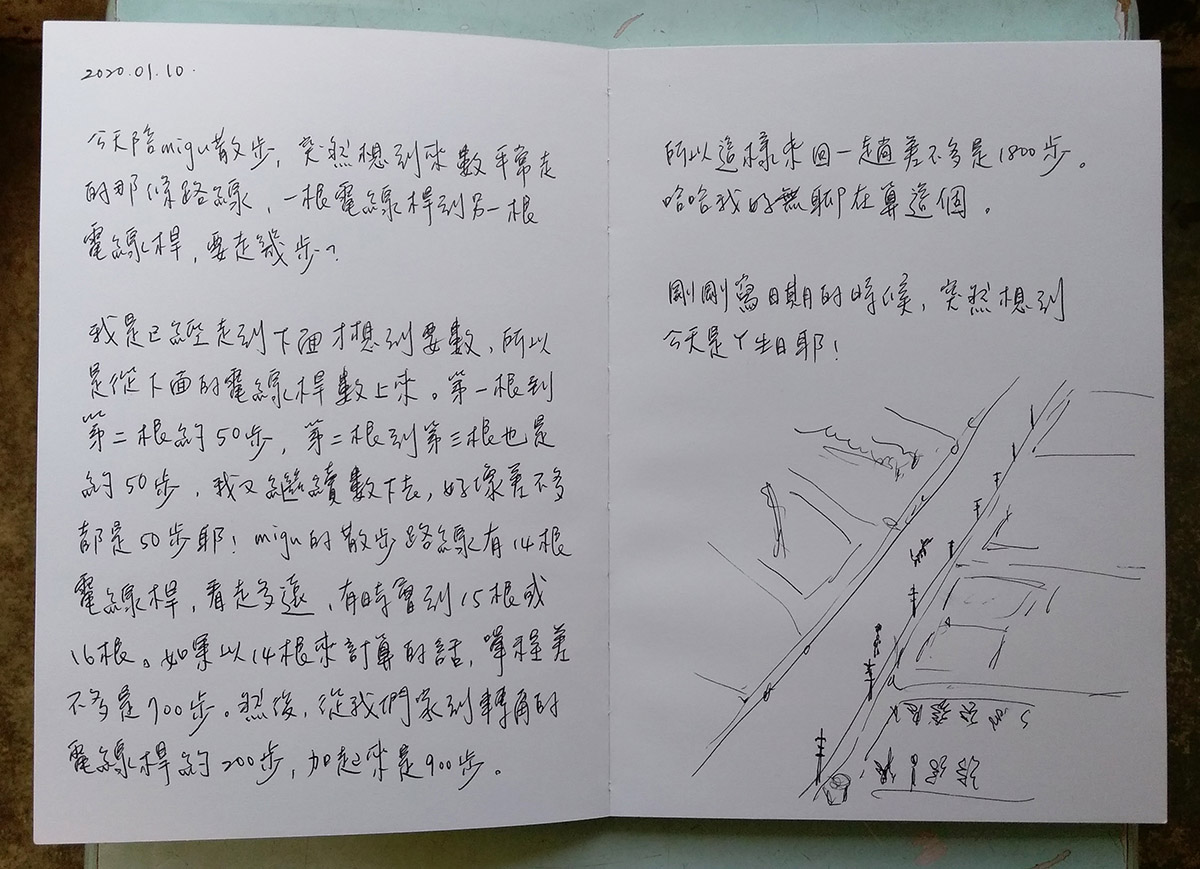 2020.01.10.
今天陪migu散步，突然想到來數平常走
的那條路線，一根電線桿到另一根
電線桿，要走幾步？
我是已經走到下面才想到要數，所以
是從下面的電線桿數上來。第一根到
第二根約50步，第二根到第三根也是
約50步，我又繼續數下去，好像差不多
都是50步耶！migu的散步路線有14根
電線桿，看走多遠，有時會到15根或
16根。如果以14根來計算的話，單程差
不多是700步。然後，從我們家到轉角的
電線桿約200步，加起來是900步。
所以這樣來回一趟差不多是1800步。
哈哈我好無聊在算這個。
剛剛寫日期的時候，突然想到
今天是丫生日耶！